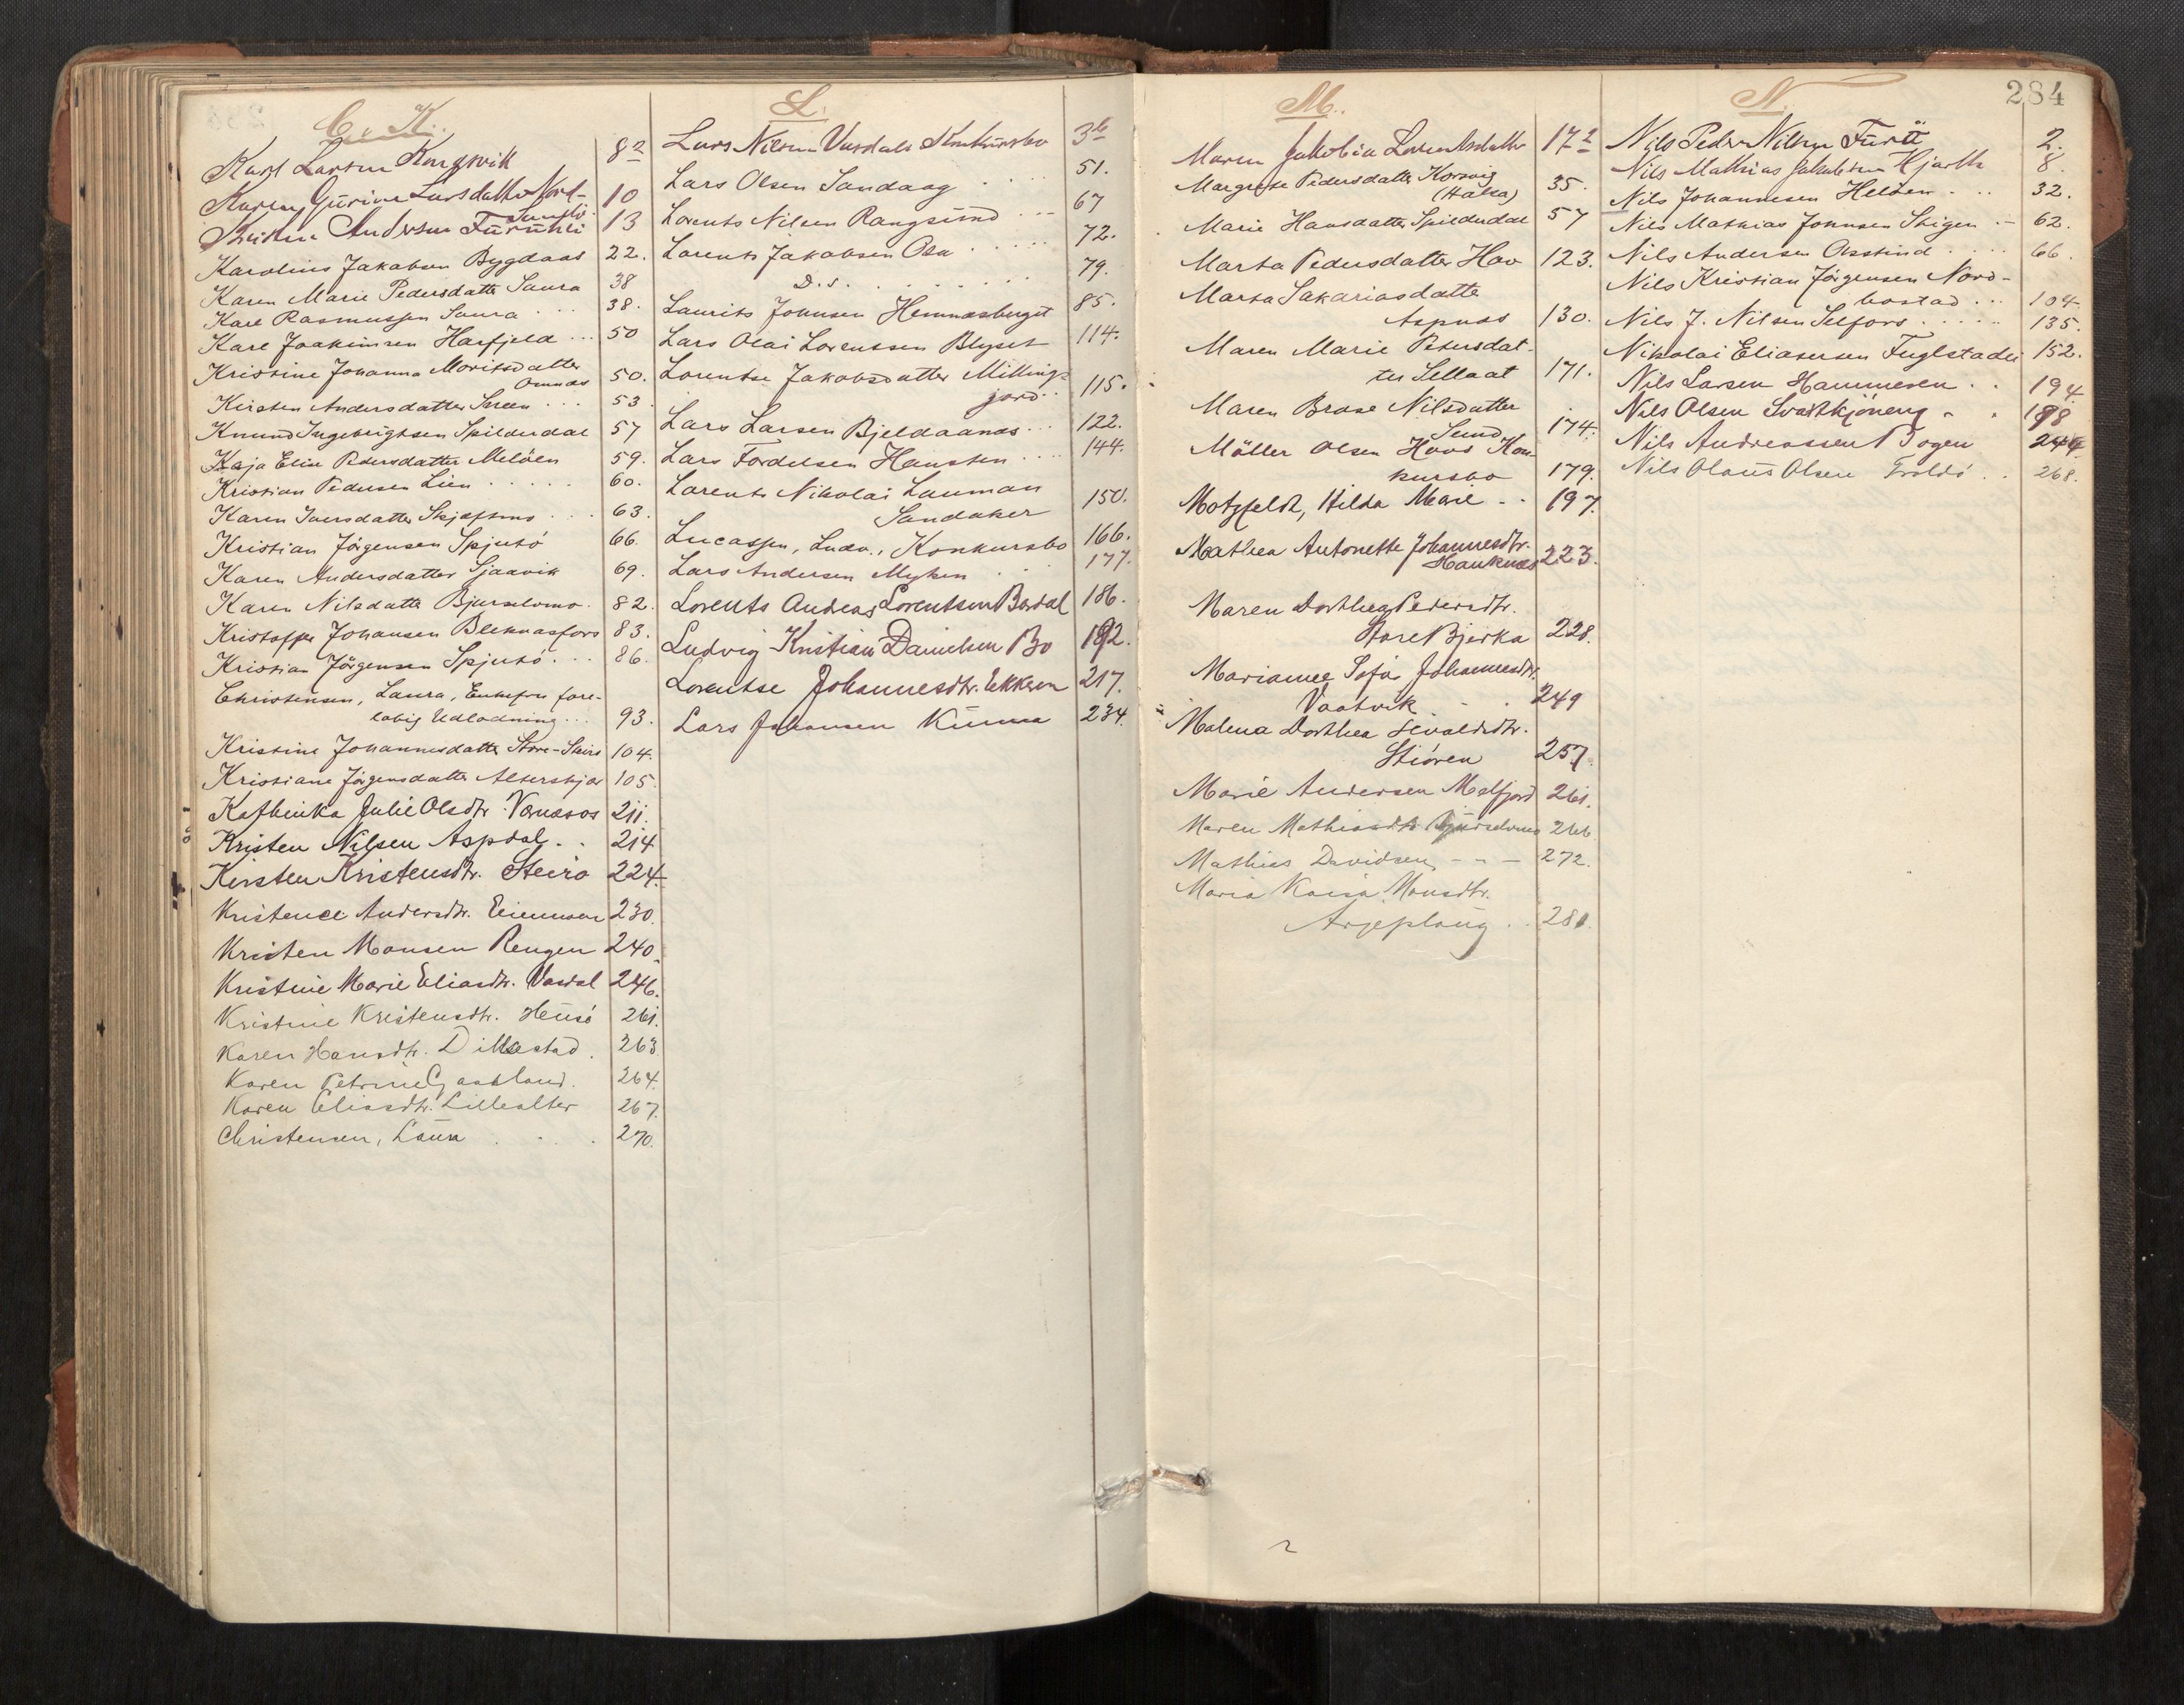 C. K.
Karl Larsen Kongsvik 8 2
Karen Gurine Larsdatter Nord- 10
Andersen 13
Karolius Jakobsen Bygdaas 22.
Karen Marie Pedersdatter Saura 38
Karl Rasmussen Saura ... 38.
Karl Joakimsen Harfjeld ... 50
Kristine Johanna Moritsdatter
50.
Kirsten Andersdatter ... 53.
Knund Ingebrigtsen Spilderdal 57
Kaja Elise Pedersdatter Melöen 59.
Kristian Pedersen Lien ..... 60.
Karen Iversdatter ... 63.
Kristian Jörgensen Spjutö 66.
Karen Andersdatter Sjaavik 69.
Karen Nilsdatter Bjurselvmo. 82.
Kristoffer Johansen Bleknasfors 83.
Kristian Jörgensen Spjutö. ... 86.
Christensen, Laura, fore-
löbig Udlodning ... 93.
Kristine Johannesdatter Store- 104.
Kristiane Jörgensdatter 105.
Kathinka Julie Olsdtr. 211.
Kristen Nilsen Aspdal . . 214
Kirsten Kristensdtr. Steiro 224.
Kristence Andersdtr. 230.
Kristen Monsen Rengen 240.
Kristine Marie Eliasdtr. 246.
Kristine Kristensdtr. 261.
Karen Hansdtr. Dillestad . 263
Karen Petrine 264.
Karen Eliasdtr. Lillealter 267.
Christensen, Laura . . . . 270.
L.
Lars Nilsen Varsdals Konkursbo 3 b
Lars Olsen Sandaag .... 51.
Lorents Nilsen Rangsund ... 67
Lorents Jakobsen Osa ..... 72.
D. s. ...... 79.
Laurits Johnsen Hemnæsberget 85.
Lars Olai Lorentsen Blyset 114.
Lorentse Jakobsdatter Millings-
gord .. 115.
Lars Larsen Bjeldaanæs ... 122.
Lars Fordelsen Hansten .... 144.
Lorents Nikolai Lauman
Sandaker 150.
Lucassen, Ludv., Konkursbo 166.
Lars Andersen Myken . . . 177.
Lorents Andreas Lorentsen Bardal 186.
Ludvig Kristian Danielsen Bo 192.
Lorentse Johannesdtr. Ekkren 217.
Lars Johansen Kunna 234.
M.
Maren Jakobia Lorentsdatter 17 2
Margrete Pedersdatter Korsvig
(Halsa) 35.
Marie Hansdatter Spilderdal 57
Marta Pedersdatter Hov 123.
Marta Sakariasdatter
Aspnes 130.
Maren Marie Petersdat-
ter Sellaat 171.
Maren Brose Nilsdatter
Sund 174.
Möller Olsen Hovs Kon-
kursbo 179.
Motzfeldt, Hilda Marie - . 197.
Mathea Antonette Johannesdtr.
Hauknes 223.
Maren Dorthea Pedersdtr.
Store Bjerka 228.
Marianne Sofie Johannesdtr.
Vaatvik . . . 249
Malena Dorthea Sivaldsdtr.
Stiören 257.
Marie Andersen Melfjord 261.
Maren Mathiasdtr. Bjurselvmo 266.
Mathias Davidsen - - - 272.
Maria Kaisa Monsdtr.
Arjeploug . . 281.
N. 284
Nils Peder Nilsen 2.
Nils Mathias Jakobsen Hjartli 8.
Nils Johannesen Heltöen . .. 32.
Nils Mathias Johnsen Stigen .- 62.
Nils Andersen ..... 66.
Nils Kristian Jörgensen Nord-
bostad ... 104.
Nils J. Nilsen Selfors ..... 135.
Nikolai Eliasersen Fuglstadli 152.
Nils Larsen Hammeren . . 194
Nils Olsen Svartkjöneng - . 198
Nils Andreassen Bogen 244
Nils Olaus Olsen Traldö . . 268.